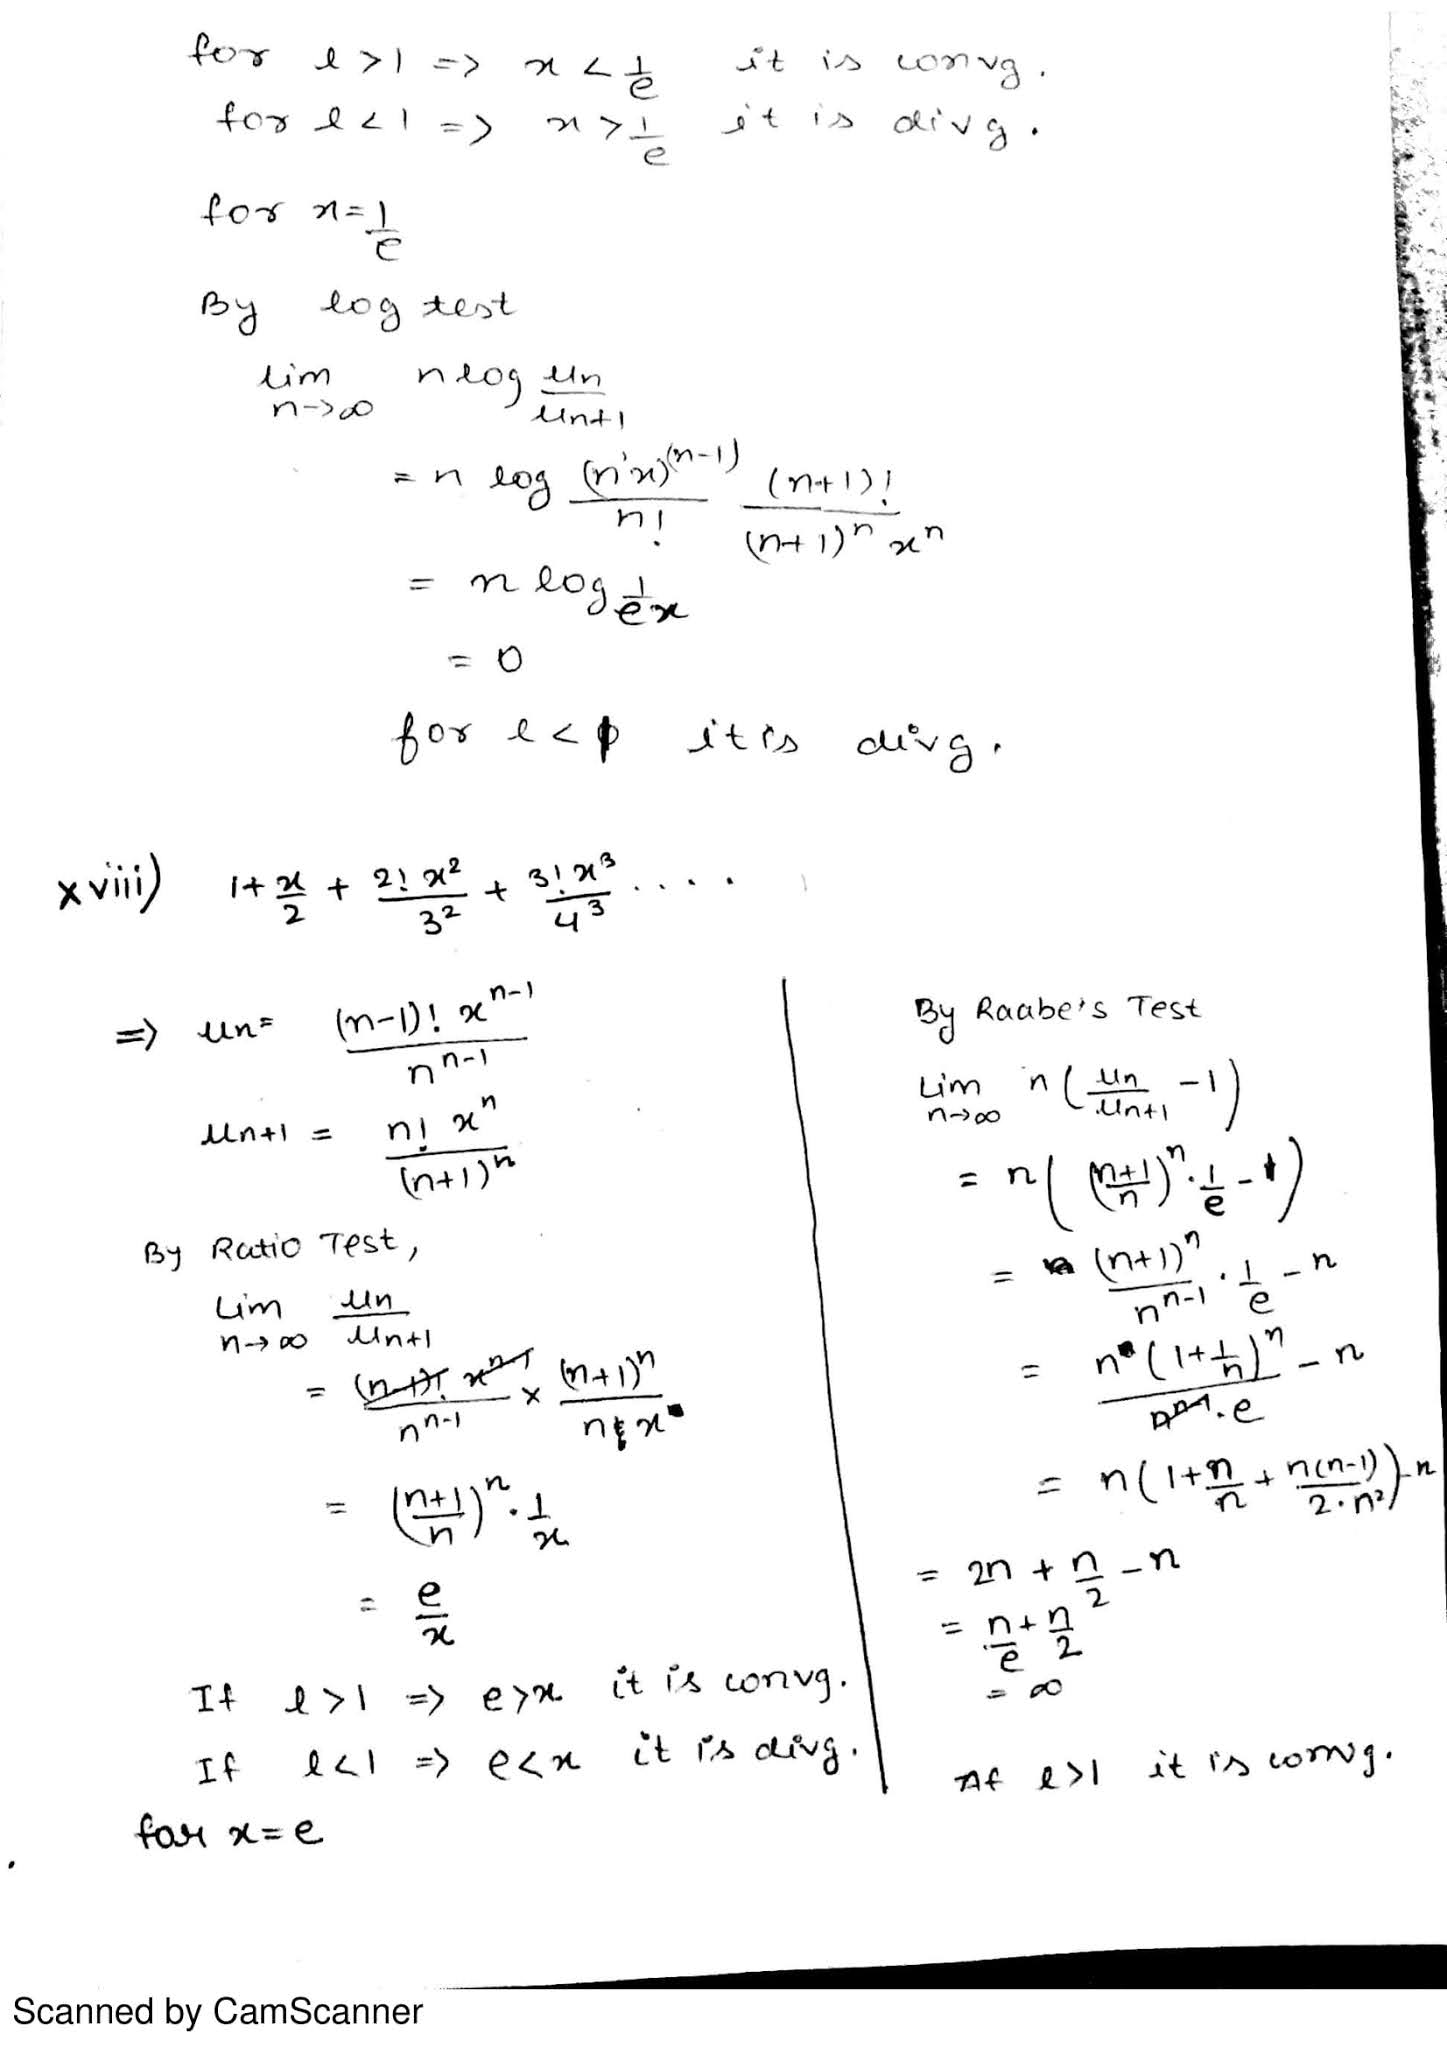 for l>1 => x < 1/e it is convg.
for l<1 => x > 1/e it is divg.
for x = 1/e
By log test
lim n->∞ n log un/un+1
= n log (n'x)^(n-1)/n! (n+1)!/(n+1)^n x^n
= n log 1/ex
= 0
for l<1 it is divg.
xviii) 1 + x/2 + 2! x^2/3^2 + 3! x^3/4^3 ....
=> un = (n-1)! x^n-1/n^n-1
un+1 = n! x^n/(n+1)^n
By Ratio Test,
Lim n->∞ un/un+1
= (n-1)! x^n-1/n^n-1 × (n+1)^n/n! x
= (n+1/n)^n . 1/x
= e/x
If l>1 => e>x it is convg.
If l<1 => e<x it is divg.
for x=e
By Raabe's Test
Lim n->∞ n(un/un+1 - 1)
= n((n+1/n)^n . 1/e - 1)
= (n+1)^n/n^n-1 . 1/e - n
= n(1+1/n)^n/n^n-1 . e - n
= n(1 + n/n + n(n-1)/2.n^2) - n
= 2n + n/2 - n
= n/e + n/2
= ∞
If l>1 it is convg.
Scanned by CamScanner